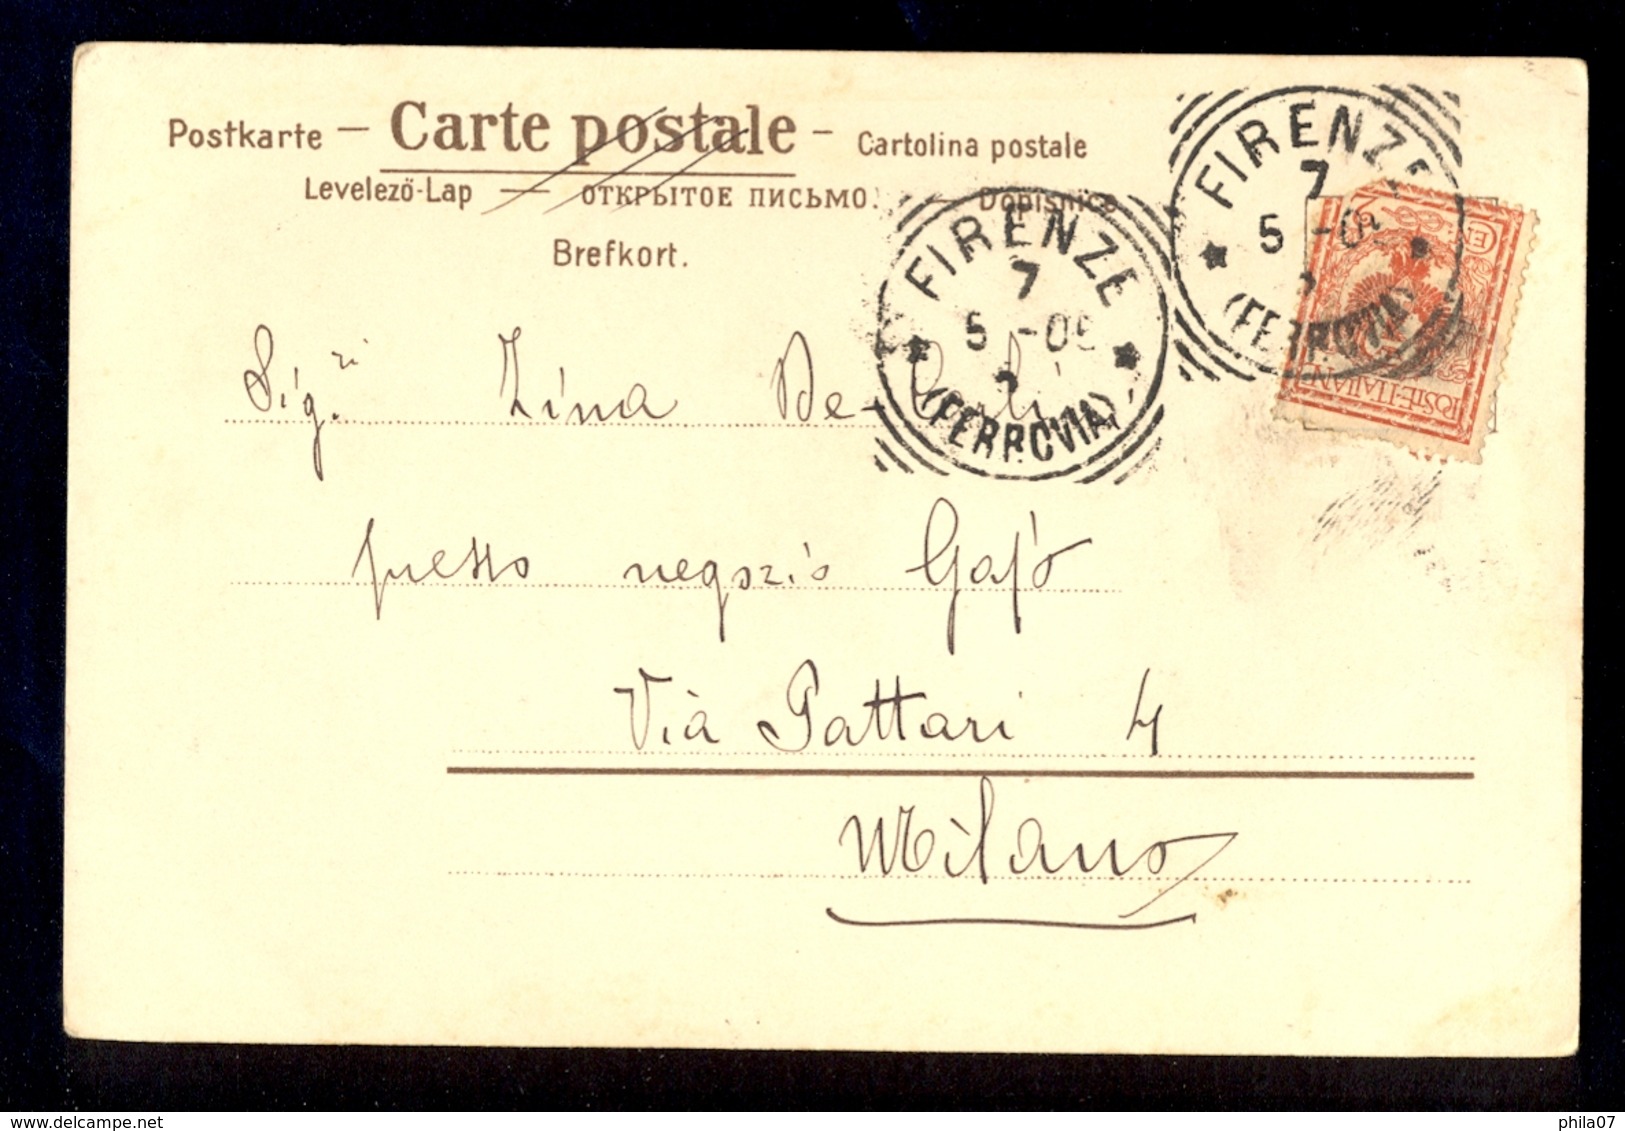 Postkarte – Carte postale – Cartolina postale
Levelező-Lap — ОТКРЫТОЕ ПИСЬМО. — Dopisnice
Brefkort.
FIRENZE
7
5 -05
(FERROVIA)
FIRENZE
7
5 -05
(FERROVIA)
POSTE ITALIANE
2
Sig.ri Zina De-
presso negozio
Via Pattari 4
Milano
phila07